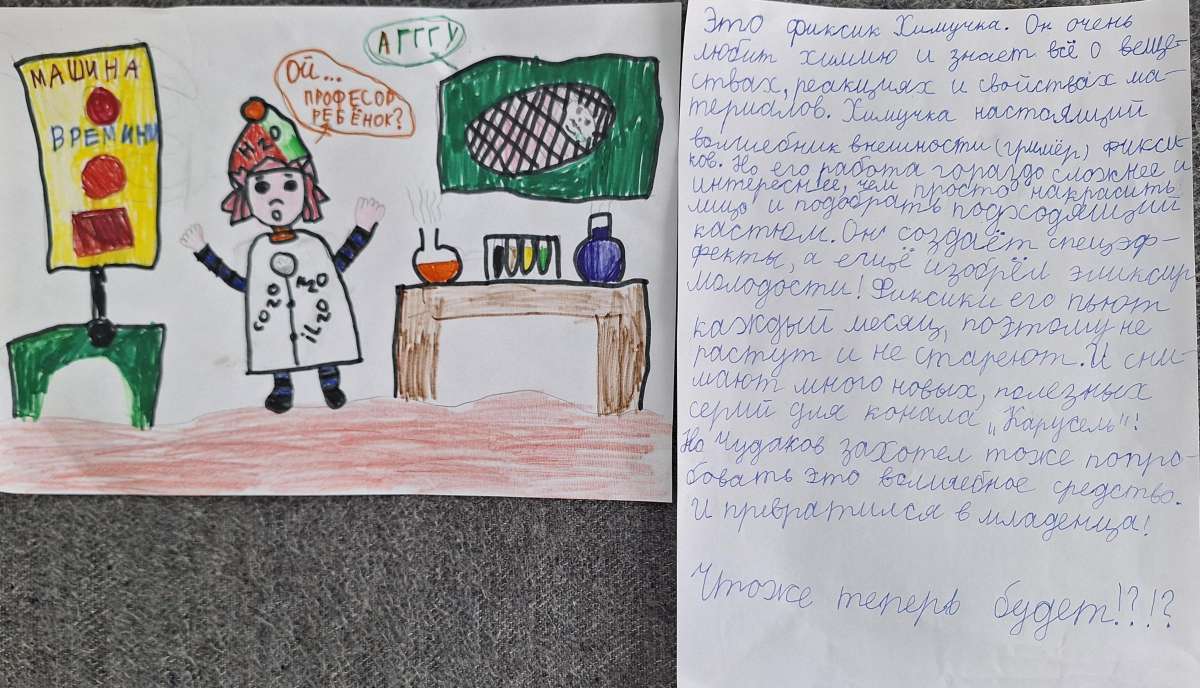 МАШИНА
ВРЕМИНИ
АГГГУ
ОЙ...
ПРОФЕСОР
РЕБЁНОК?
H2O
CO2O
H2O
iL2O
Это фиксик Химучка. Он очень
любит химию и знает всё о веще-
ствах, реакциях и свойствах ма-
териалов. Химучка настоящий
волшебник внешности (гримёр) фикси-
ков. Но его работа гораздо сложнее и
интереснее, чем просто накрасить
лицо и подобрать подходящий
кастюм. Он создаёт спецэф-
фекты, а ещё изобрёл эликсир
молодости! Фиксики его пьют
каждый месяц, поэтому не
растут и не стареют. И сни-
мают много новых, полезных
серий для конала „Карусель"!
Но Чудаков захотел тоже попро-
бовать это волшебное средство.
И превратился в младенца!
Чтоже теперь будет!?!?